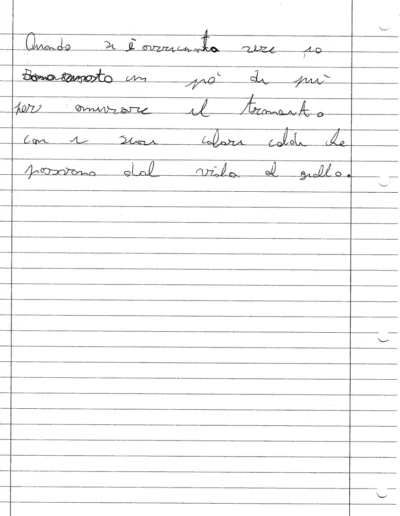 Quando si è avvicinata sera io
sono rimasto un pò di più
per ammirare il tramonto
con i suoi colori caldi che
passano dal viola al giallo.